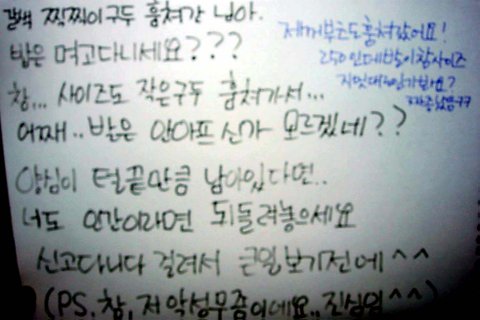 갈색 찍찍이구두 훔쳐간 님아.
밥은 먹고다니세요???
참... 사이즈도 작은구두 훔쳐가서...
어째.. 발은 안아프신가 모르겠네??
양심이 털끝만큼 남아있다면..
너도 인간이라면 되돌려놓으세요
신고다니다 걸려서 큰일보기전에^^
(PS. 참, 저 악성무좀이에요.. 진심임^^)
제꺼부츠도훔쳐갔어요!
250인데발이참사이즈